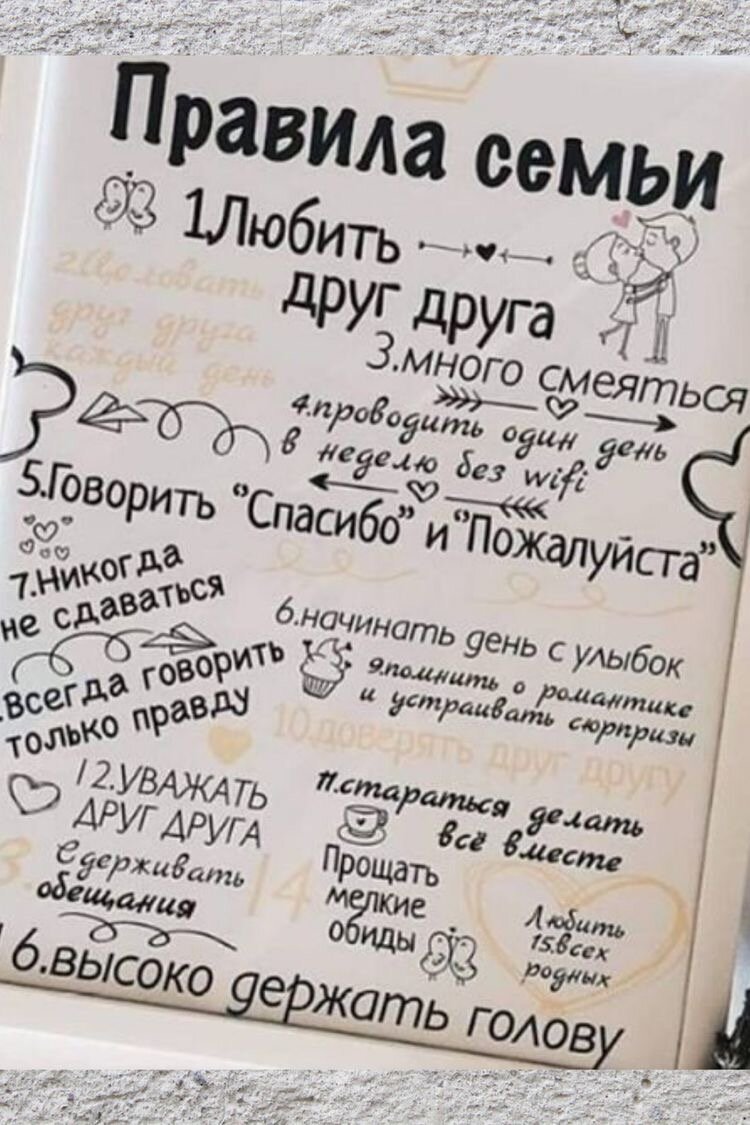 Правила семьи
1Любить
друг друга
2Целовать
друг друга
каждый день
3.много смеяться
4.проводить один день
в неделю без wifi
5.Говорить “Спасибо” и “Пожалуйста”
7.Никогда
не сдаваться
6.начинать день с улыбок
.Всегда говорить
только правду
9.помнить о романтике
и устраивать сюрпризы
10.доверять друг другу
12.УВАЖАТЬ
ДРУГ ДРУГА
11.стараться делать
всё вместе
3.
Сдерживать
обещания
14
Прощать
мелкие
обиды
Любить
15.всех
родных
16.высоко держать голову